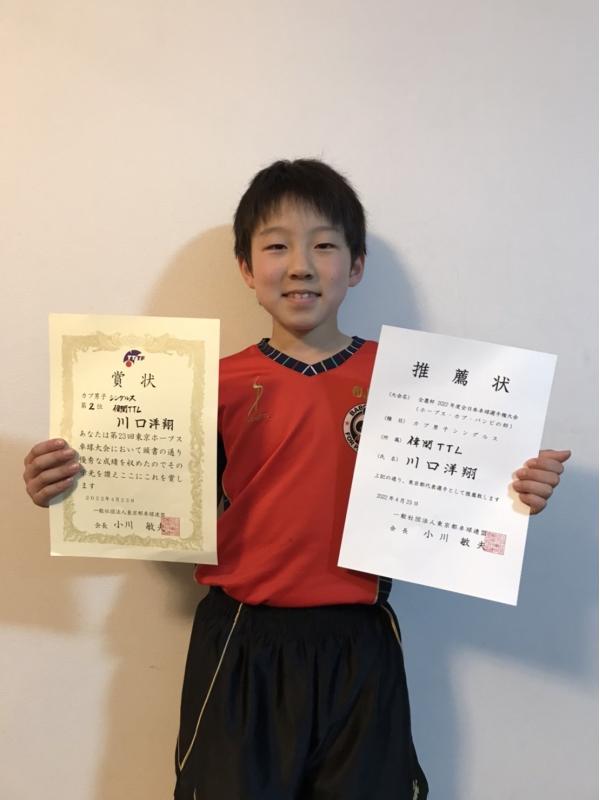 賞状
カブ男子 シングルス
第2位 偉関TTL
川口洋翔
あなたは第23回東京ホープス
卓球大会において頭書の通り
優秀な成績を収めたのでその
栄光を讃えここにこれを賞し
ます
2022年4月23日
一般社団法人東京都卓球連盟
会長 小川 敏夫
推薦状
(大会名) 全農杯 2022年度全日本卓球選手権大会
(ホープス・カブ・バンビの部)
(種目) カブ男子シングルス
(所属) 偉関TTL
(氏名) 川口洋翔
上記の通り、東京都代表選手として推薦致します
2022年4月23日
一般社団法人東京都卓球連盟
会長 小川 敏夫